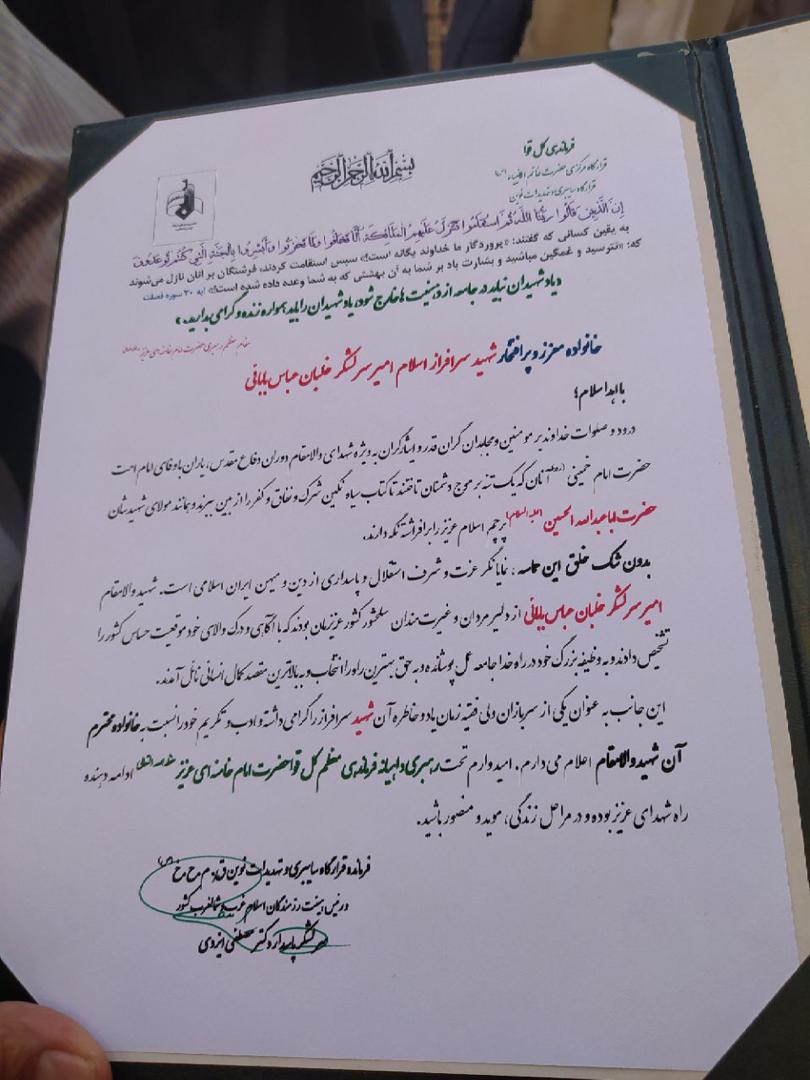 بسم الله الرحمن الرحیم
فرماندهی کل قوا
قرارگاه مرکزی حضرت خاتم الانبیاء (ص)
قرارگاه سایبری و تهدیدات نوین
إن الذین قالوا ربنا الله ثم استقاموا تتنزل علیهم الملائکة ألا تخافوا ولا تحزنوا وأبشروا بالجنة التی کنتم توعدون
به یقین کسانی که گفتند: «پروردگار ما خداوند یگانه است!» سپس استقامت کردند، فرشتگان بر آنان نازل می‌شوند
که: «نترسید و غمگین مباشید و بشارت باد بر شما به آن بهشتی که به شما وعده داده شده است!» آیه ۳۰ سوره فصلت
«یاد شهیدان نباید در جامعه از ذهنیت ها خارج شود، یاد شهیدان را باید همواره زنده و گرامی بدارید.»
مقام معظم رهبری حضرت امام خامنه ای عزیز
خانواده معزز و پرافتخار شهید سرافراز اسلام امیر سرلشکر خلبان عباس بابائی
با اهداسلام؛
درود و صلوات خداوند بر مومنین و مجاهدان گران قدر و ایثارگران به ویژه شهدای والامقام دوران دفاع مقدس، یاران باوفای امام امت
حضرت امام خمینی (ره) آنان که یک تنه بر موج دشمنان تاختند تا کتاب سیاه ننگین شرک و نفاق و کفر را از بین ببرند و همانند مولای شهیدشان
حضرت اباعبدالله الحسین (علیه السلام) پرچم اسلام عزیز را برافراشته نگه دارند.
بدون شک خلق این حماسه، نمایانگر عزت و شرف استقلال و پاسداری از دین و میهن ایران اسلامی است. شهید والامقام
امیر سرلشکر خلبان عباس بابائی از دلیرمردان و غیرت مندان سلحشور کشور عزیزمان بودند که با آگاهی و درک والای خود موقعیت حساس کشور را
تشخیص دادند و به وظیفه بزرگ خود در راه خدا جامه عمل پوشانده و به حق بهترین راه را انتخاب و به بالاترین مقصد کمال انسانی نائل آمدند.
این جانب به عنوان یکی از سربازان ولی فقیه زمان یاد و خاطره آن شهید سرافراز را گرامی داشته و ادب و تکریم خود را نسبت به خانواده محترم
آن شهید والامقام اعلام می دارم. امیدوارم تحت رهبری داهیانه فرماندهی معظم کل قوا حضرت امام خامنه ای عزیز ادامه دهنده
راه شهدای عزیز بوده و در مراحل زندگی، موید و منصور باشید.
فرمانده قرارگاه سایبری و تهدیدات نوین ق. م ح خ (ص)
و رئیس هیئت رزمندگان اسلام غرب و شمالغرب کشور
سرلشکر پاسدار دکتر مصطفی ایزدی